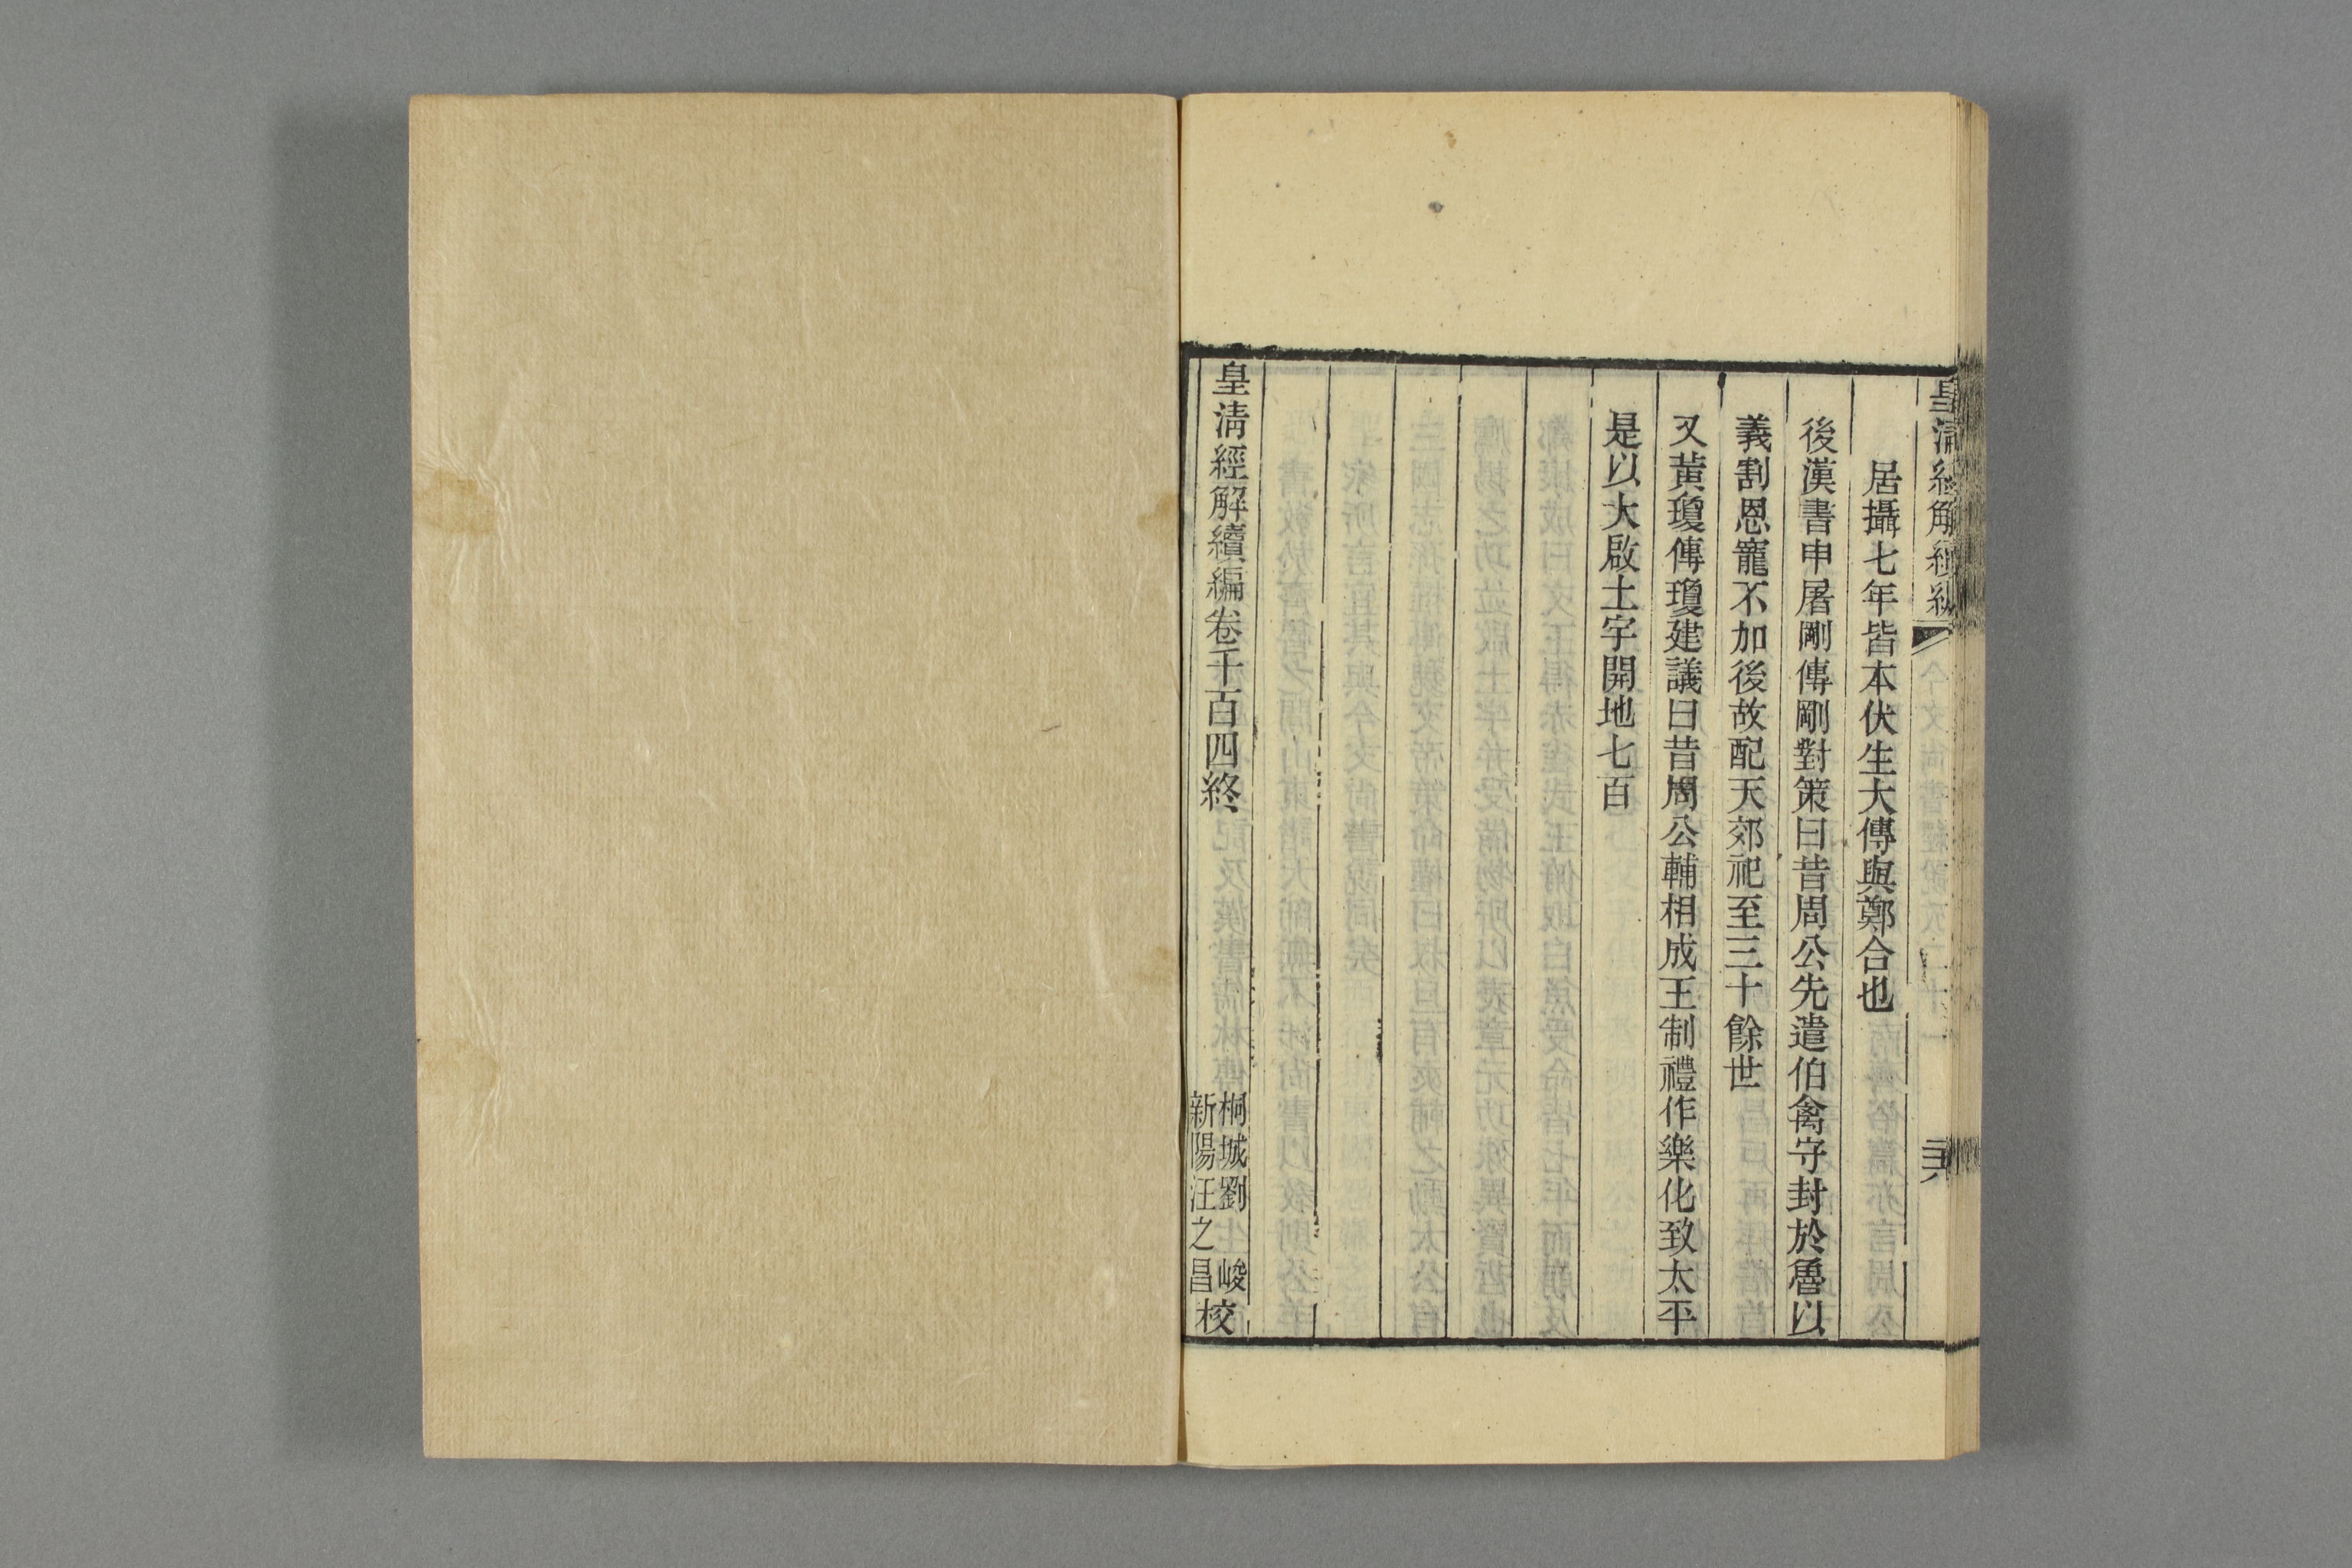 皇清經解續編
居攝七年皆本伏生大傳與鄭合也
後漢書申屠剛傳剛對策曰昔周公先遣伯禽守封於魯以
義割恩寵不加後故配天郊祀至三十餘世
又黃瓊傳瓊建議曰昔周公輔相成王制禮作樂化致太平
是以大啟土宇開地七百
皇清經解續編卷千百四終
桐城劉 峻
新陽汪之昌
校